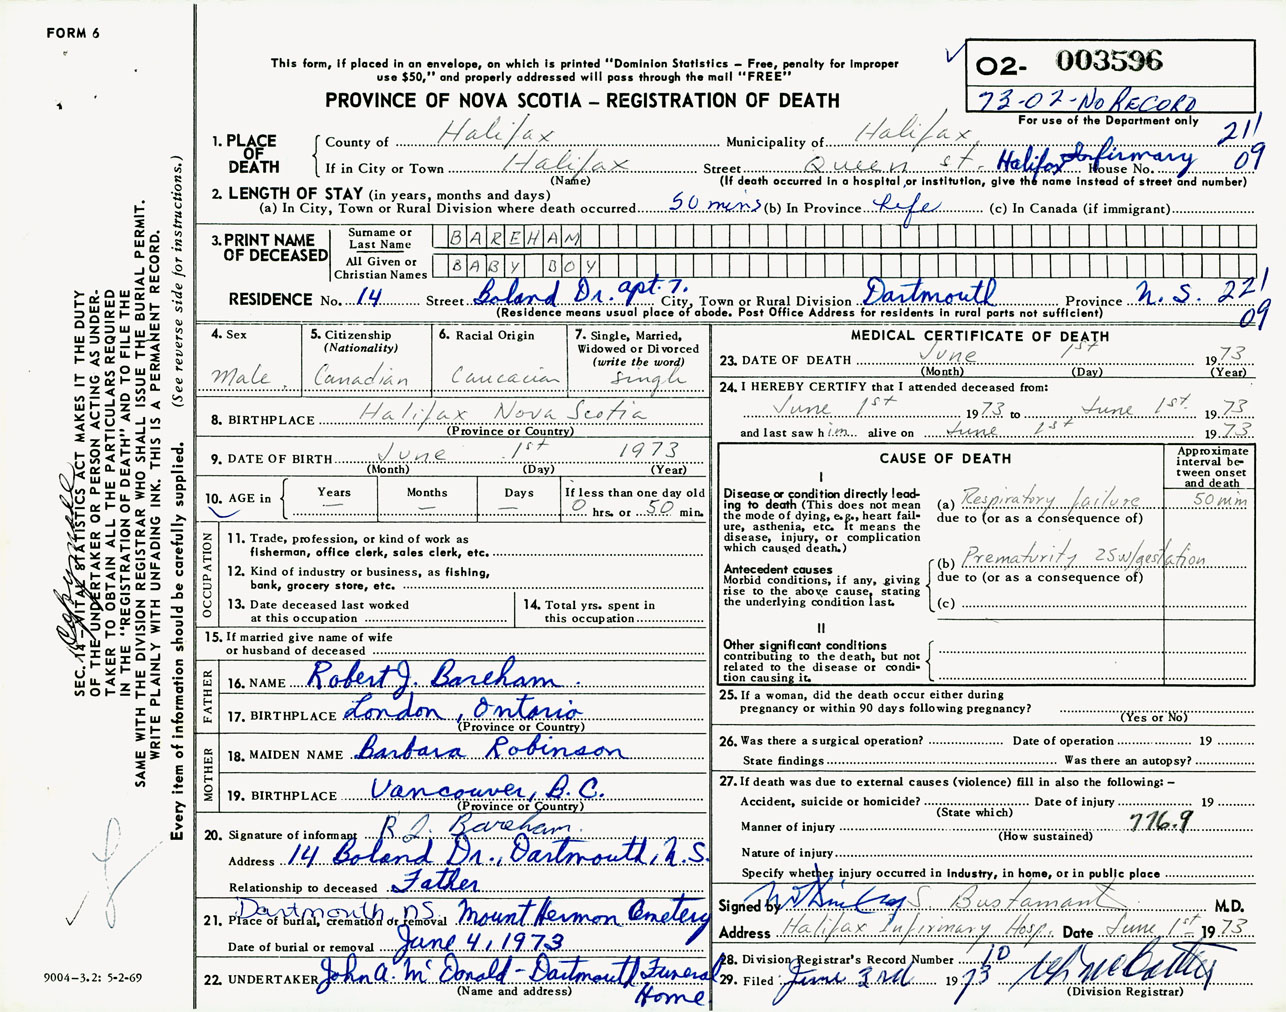 FORM 6
This form, if placed in an envelope, on which is printed "Dominion Statistics – Free, penalty for improper
use $50," and properly addressed will pass through the mail "FREE"
02- 003596
73-02-No RECORD
For use of the Department only
PROVINCE OF NOVA SCOTIA – REGISTRATION OF DEATH
1. PLACE OF DEATH
County of Halifax Municipality of Halifax 211
If in City or Town Halifax Street Queen St. Halifax Infirmary House No. 09
(Name) (If death occurred in a hospital or institution, give the name instead of street and number)
2. LENGTH OF STAY (in years, months and days)
(a) In City, Town or Rural Division where death occurred 50 mins (b) In Province life (c) In Canada (if immigrant)
3. PRINT NAME OF DECEASED
Surname or Last Name BAREHAM
All Given or Christian Names BABY BOY
RESIDENCE No. 14 Street Boland Dr. apt. 7. City, Town or Rural Division Dartmouth Province N. S. 221
(Residence means usual place of abode. Post Office Address for residents in rural parts not sufficient) 09
4. Sex
Male
5. Citizenship
(Nationality)
Canadian
6. Racial Origin
Caucacian
7. Single, Married,
Widowed or Divorced
(write the word)
Single
8. BIRTHPLACE Halifax Nova Scotia
(Province or Country)
9. DATE OF BIRTH June 1st 1973
(Month) (Day) (Year)
10. AGE in
Years —
Months —
Days —
If less than one day old
0 hrs. or 50 min.
OCCUPATION
11. Trade, profession, or kind of work as
fisherman, office clerk, sales clerk, etc.
12. Kind of industry or business, as fishing,
bank, grocery store, etc.
13. Date deceased last worked
at this occupation
14. Total yrs. spent in
this occupation
15. If married give name of wife
or husband of deceased
FATHER
16. NAME Robert J. Bareham.
17. BIRTHPLACE London, Ontario
(Province or Country)
MOTHER
18. MAIDEN NAME Barbara Robinson
19. BIRTHPLACE Vancouver, B.C.
(Province or Country)
20. Signature of informant R J. Bareham.
Address 14 Boland Dr., Dartmouth, N.S.
Relationship to deceased Father
21. Place of burial, cremation or removal Dartmouth NS. Mount Hermon Cemetery
Date of burial or removal June 4, 1973
22. UNDERTAKER John A. McDonald - Dartmouth Funeral
(Name and address) Home
MEDICAL CERTIFICATE OF DEATH
23. DATE OF DEATH June 1st 1973
(Month) (Day) (Year)
24. I HEREBY CERTIFY that I attended deceased from:
June 1st 1973 to June 1st. 1973
and last saw him alive on June 1st 1973
CAUSE OF DEATH
Approximate
interval be-
tween onset
and death
I
Disease or condition directly lead-
ing to death (This does not mean
the mode of dying, e.g., heart fail-
ure, asthenia, etc. It means the
disease, injury, or complication
which caused death.)
(a) Respiratory failure 50 min
due to (or as a consequence of)
Antecedent causes
Morbid conditions, if any, giving
rise to the above cause, stating
the underlying condition last.
(b) Prematurity 25w/gestation
due to (or as a consequence of)
(c)
II
Other significant conditions
contributing to the death, but not
related to the disease or condi-
tion causing it.
25. If a woman, did the death occur either during
pregnancy or within 90 days following pregnancy?
(Yes or No)
26. Was there a surgical operation? Date of operation 19
State findings Was there an autopsy?
27. If death was due to external causes (violence) fill in also the following: –
Accident, suicide or homicide? Date of injury 19
(State which)
Manner of injury 776.9
(How sustained)
Nature of injury
Specify whether injury occurred in industry, in home, or in public place
Signed by S Bustamant M.D.
Address Halifax Infirmary Hosp. Date June 1st 1973
28. Division Registrar's Record Number
29. Filed June 3rd 1973
(Division Registrar)
SEC. 14 – VITAL STATISTICS ACT MAKES IT THE DUTY
OF THE UNDERTAKER OR PERSON ACTING AS UNDER-
TAKER TO OBTAIN ALL THE PARTICULARS REQUIRED
IN THE "REGISTRATION OF DEATH" AND TO FILE THE
SAME WITH THE DIVISION REGISTRAR WHO SHALL ISSUE THE BURIAL PERMIT.
WRITE PLAINLY WITH UNFADING INK. THIS IS A PERMANENT RECORD.
Every item of information should be carefully supplied. (See reverse side for instructions.)
9004–3.2: 5-2-69